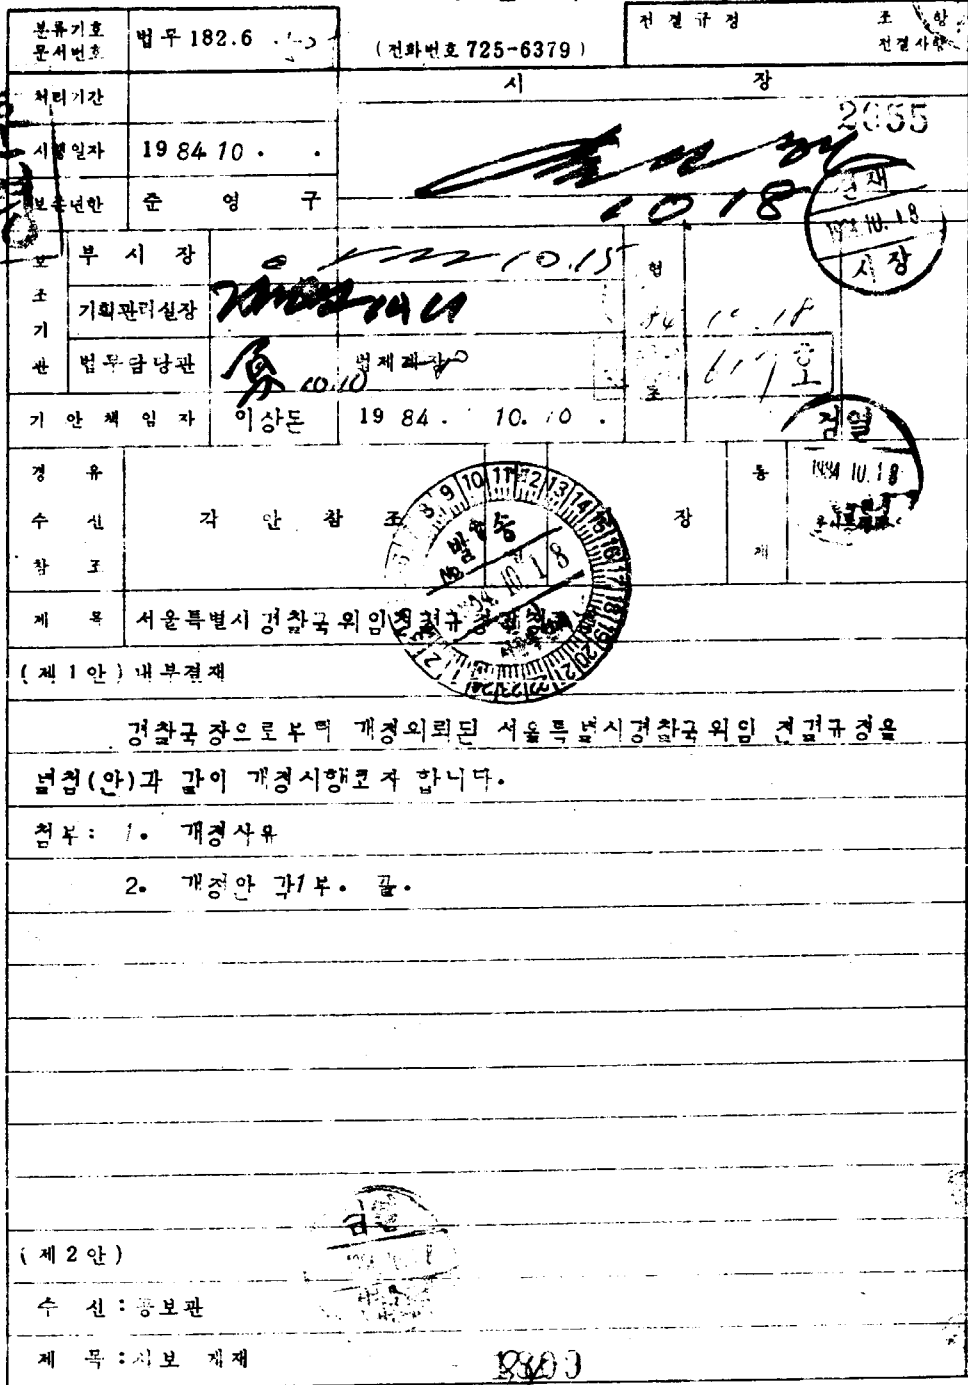 분류기호
문서번호
법무 182.6
(전화번호 725-6379)
전결규정
조 항
전결사항
처리기간
시 장
2655
시행일자
1984 10 . .
10 18
보존년한
준 영 구
결재
1984.10.18
시장
보조기관
부 시 장
10.15
협조
기획관리실장
84 10 . 18
법무담당관
10.10
법제계장
617 호
기 안 책 임 자
이상돈
1984 . 10. 10 .
검열
1984 10.18
경 유
수 신
참 조
각 안 참 조
장
통제
발송
1984.10.18
제 목
서울특별시 경찰국 위임전결규정
(제 1 안) 내부결재
경찰국장으로부터 개정의뢰된 서울특별시경찰국위임 전결규정을
별첨(안)과 같이 개정시행코자 합니다.
첨부: 1. 개정사유
2. 개정안 각1부. 끝.
(제 2 안)
수 신 : 공보관
제 목 : 시보 게재